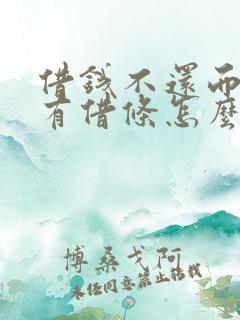 借钱不還而
有借條怎麼
博桑戈阿
未经同意禁止转载